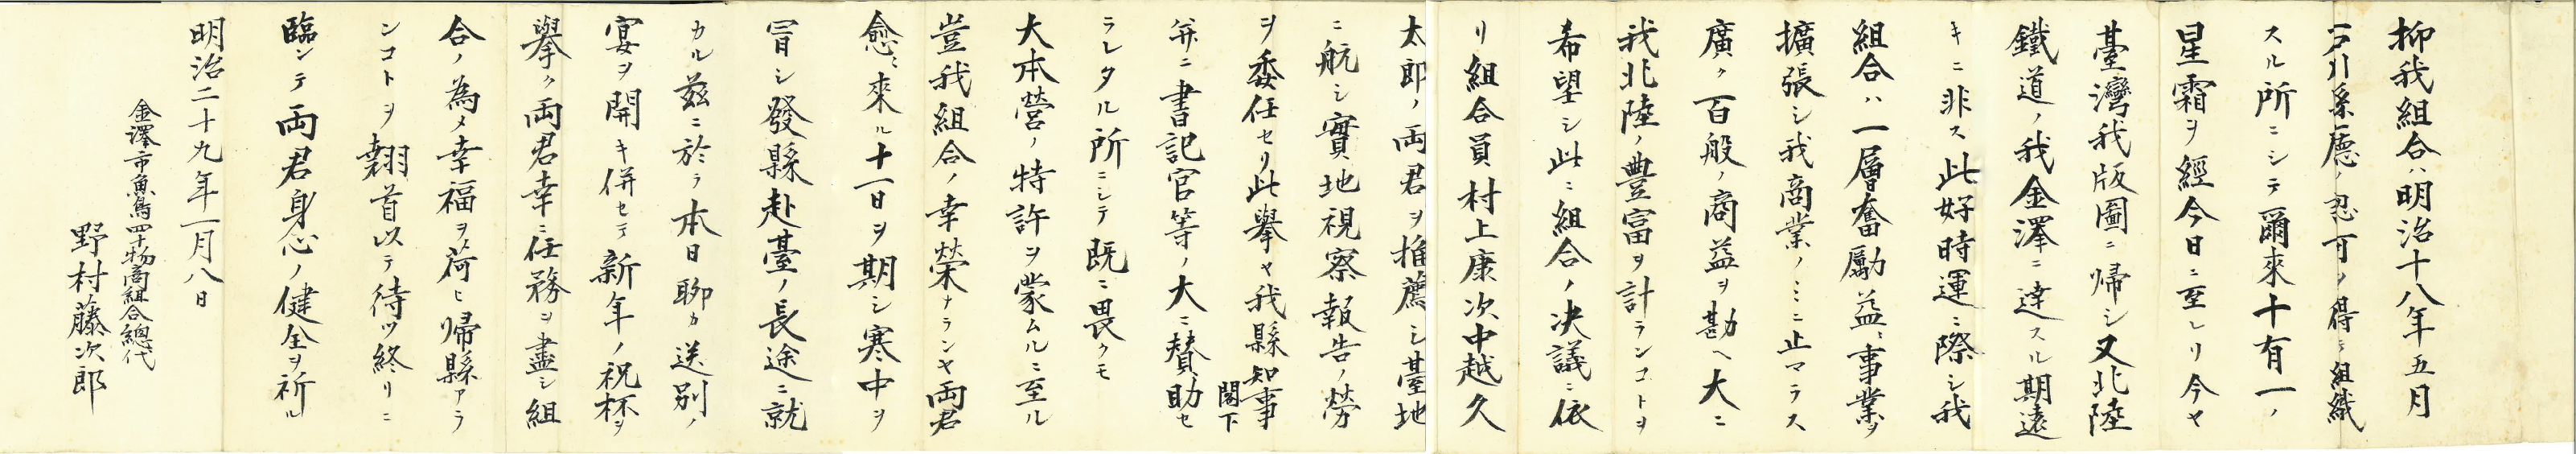 抑我組合ハ明治十八年五月
石川県廳ノ認可ヲ得テ組織
スル所ニシテ爾來十有一ノ
星霜ヲ經今日ニ至レリ今ヤ
臺灣我版圖ニ帰シ又北陸
鐵道ノ我金澤ニ達スル期遠
キニ非ス此好時運ニ際シ我
組合ハ一層奮勵益〻事業ヲ
擴張シ我商業ノミニ止マラス
廣ク百般ノ商益ヲ勘ヘ大ニ
我北陸ノ豊富ヲ計ランコトヲ
希望シ此ニ組合ノ决議ニ依
リ組合員村上康次中越久
太郎ノ両君ヲ推薦シ臺地
ニ航シ實地視察報告ノ勞
ヲ委任セリ此擧ヤ我縣知事閣下
并ニ書記官等ノ大ニ賛助セ
ラレタル所ニシテ既ニ畏クモ
大本營ノ特許ヲ蒙ムルニ至ル
豈我組合ノ幸榮ナランヤ両君
愈〻來ル十一日ヲ期シ寒中ヲ
冒シ發縣赴臺ノ長途ニ就
カル茲ニ於テ本日聊カ送別ノ
宴ヲ開キ併セテ新年ノ祝杯ヲ
擧ク両君幸ニ任務ヲ盡シ組
合ノ為メ幸福ヲ荷ヒ帰縣アラ
ンコトヲ翹首以テ待ツ終リニ
臨ンテ両君身心ノ健全ヲ祈ル
明治二十九年一月八日
金澤市魚鳥四十物商組合總代
野村藤次郎